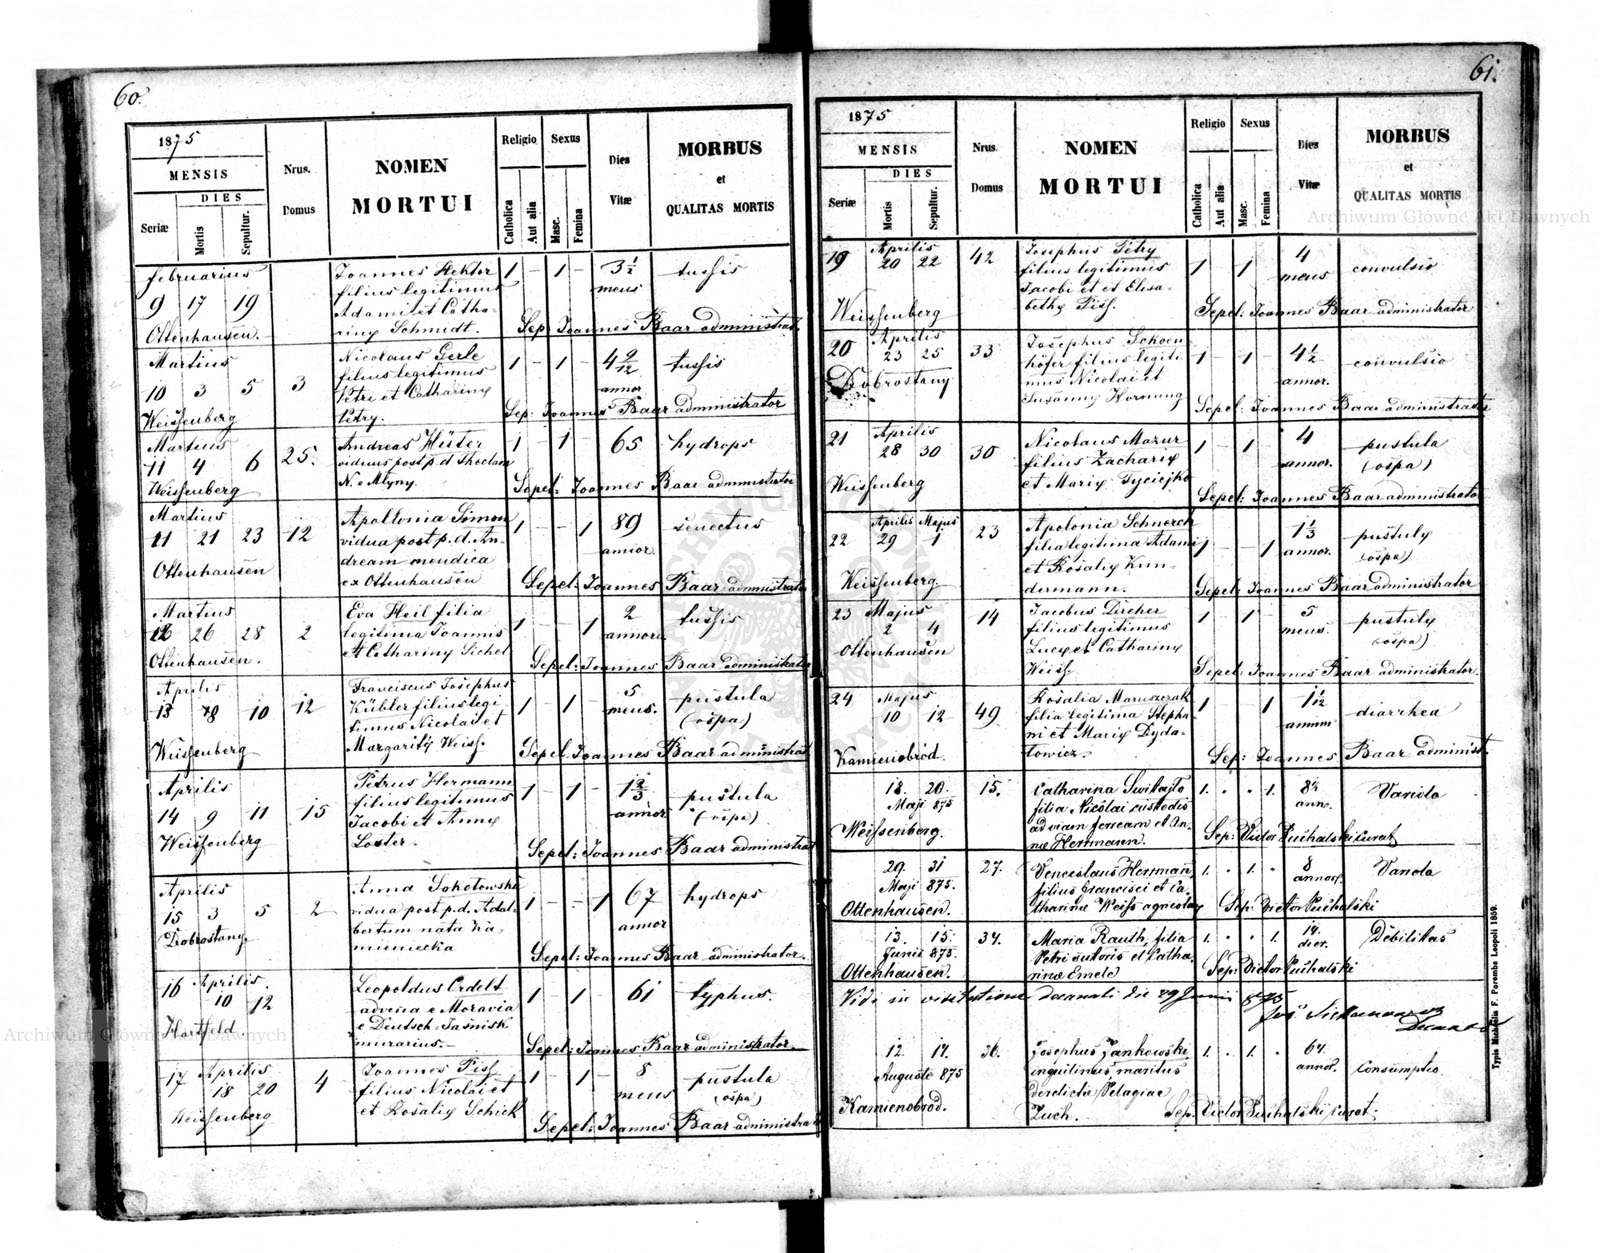 60.
1875
MENSIS
DIES
Seriæ
Mortis
Sepultur.
Nrus.
Domus
NOMEN
MORTUI
Religio
Catholica
Aut alia
Sexus
Masc.
Femina
Dies
Vitæ
MORBUS
et
QUALITAS MORTIS
Februarius
9 17 19
Ottenhausen.
Joannes Hektor
filius legitimus
Adami et Catha-
rinę Schmidt.
1 - 1 - 3½ tussis
meus
Sep: Joannes Baar administrat
Martius
10 3 5 3
Weissenberg
Nicolaus Gerle
filius legitimus
Petri et Catharinę
Petry.
1 - 1 - 4 9/12 tussis
annor
Sep: Joannes Baar administrator
Martius
11 4 6 25.
Weissenberg
Andreas Hüter
viduus post p.d. Theclam
N. e Młyny.
1 - 1 - 65 hydrops
Sepel: Joannes Baar administrator
Martius
11 21 23 12
Ottenhausen
Apollonia Simon
vidua post p.d. An-
dream mendica
ex Ottenhausen
1 - - 1 89 senectus
annor
Sepel: Joannes Baar administrator
Martius
12 26 28 2
Ottenhausen.
Eva Heil filia
legitima Joannis
et Catharinę Sichel
1 - - 1 2 tussis
annora
Sepel: Joannes Baar administrator
Aprilis
13 8 10 12
Weissenberg
Franciscus Josephus
Kübler filius legi
timus Nicolai et
Margaritę Weiss.
1 - 1 - 5 pustula
meus. (ospa)
Sepel: Joannes Baar administrat
Aprilis
14 9 11 15
Weissenberg
Petrus Hermann
filius legitimus
Jacobi et Annę
Loster.
1 - 1 - 1⅔ pustula
annor (ospa)
Sepel: Joannes Baar administrat
Aprilis
15 3 5 2
Dobrostany
Anna Sokołowska
vidua post p.d. Adal-
bertum nata Ka-
mieniecka
1 - - 1 67 hydrops
annor
Sepel: Joannes Baar administrator.
16 Aprilis
10 12
Hartfeld.
Leopoldus Ardelt
advena e Moravia
e Deutsch Jasnisk
murarius.
1 - 1 - 61 typhus.
Sepel: Joannes Baar administrator.
17 Aprilis
18 20 4
Weissenberg
Joannes Piss
filius Nicolai et
et Rosalię Schick
1 - 1 - 8 pustula
meus (ospa)
Sepel: Joannes Baar administra
61.
1875
MENSIS
DIES
Seriæ
Mortis
Sepultur.
Nrus.
Domus
NOMEN
MORTUI
Religio
Catholica
Aut alia
Sexus
Masc.
Femina
Dies
Vitæ
MORBUS
et
QUALITAS MORTIS
19 Aprilis
20 22 42
Weissenberg
Josephus Petry
filius legitimus
Jacobi et et Elisa-
bethę Piss.
1 - 1 4 convulsio
meus
Sepel: Joannes Baar administrator
20 Aprilis
23 25 33
Dobrostany
Josephus Schoen-
höfer filius legiti
mus Nicolai et
Susannę Hornung
1 - 1 4½ convulsio
annor.
Sepel: Joannes Baar administrator
21 Aprilis
28 30 30
Weissenberg
Nicolaus Mazur
filius Zacharię
et Marię Tyciejko
1 - 1 4 pustula
annor. (ospa)
Sepel: Joannes Baar administrator
22 Aprilis Majus
29 1 23
Weissenberg.
Apolonia Schnerch
filia legitima Adami
et Rosalię Kun-
dermann.
1 1 1⅓ pustulę
annor. (ospa)
Sepel: Joannes Baar administrator
23 Majus
2 4 14
Ottenhausen
Jacobus Dreher
filius legitimus
Lucę et Catharinę
Weiss
1 1 5 pustulę
meus. (ospa)
Sepel: Joannes Baar administrator.
24 Majus
10 12 49
Kamienobrod.
Rosalia Maruszczak
filia legitima Stepha-
ni et Marię Dyda-
towicz.
1 1 1 1/12 diarrhea
Sep: Joannes Baar administ.
18. 20. 15.
Maji 875
Weissenberg.
Catharina Swikajlo
filia Nicolai custodis
ad viam ferream et An-
næ Herrmann.
1. . . 1. 8½ Variola
ann.
Sep: Victor Puchalski curat
29. 31 27.
Maji 875.
Ottenhausen.
Venceslaus Herrman,
filius Francisci et Ca-
tharinæ Weiss agricolæ
1. . 1. . 8 Variola
Sep: Victor Puchalski
13. 15. 34.
Junii 875.
Ottenhausen.
Maria Rauth, filia
Petri sutoris et Catha-
rinæ Emele
1. . . 1. 14. Debilitas
dier.
Sep: Victor Puchalski
Vidi in visitatione decanali die 29 Junii 875
Decanus
12. 14. 36.
Augusti 875
Kamienobrod.
Josephus Jankowski
inquilinus, maritus
derelictæ Pelagiae
Zuch.
1. . 1. . 64. Consumptio
annor.
Sep: Victor Puchalski curat.
Typis Michaelis F. Poremba Leopoli 1859.
Archiwum Główne Akt Dawnych
Archiwum Główne Akt Dawnych